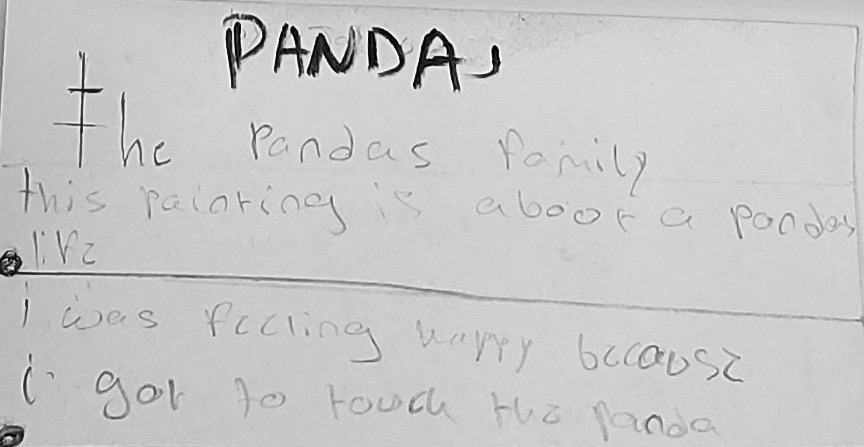 PANDAs
The Pandas family
this painting is aboot a pandas
life
i was feeling happy because
i got to touch the panda